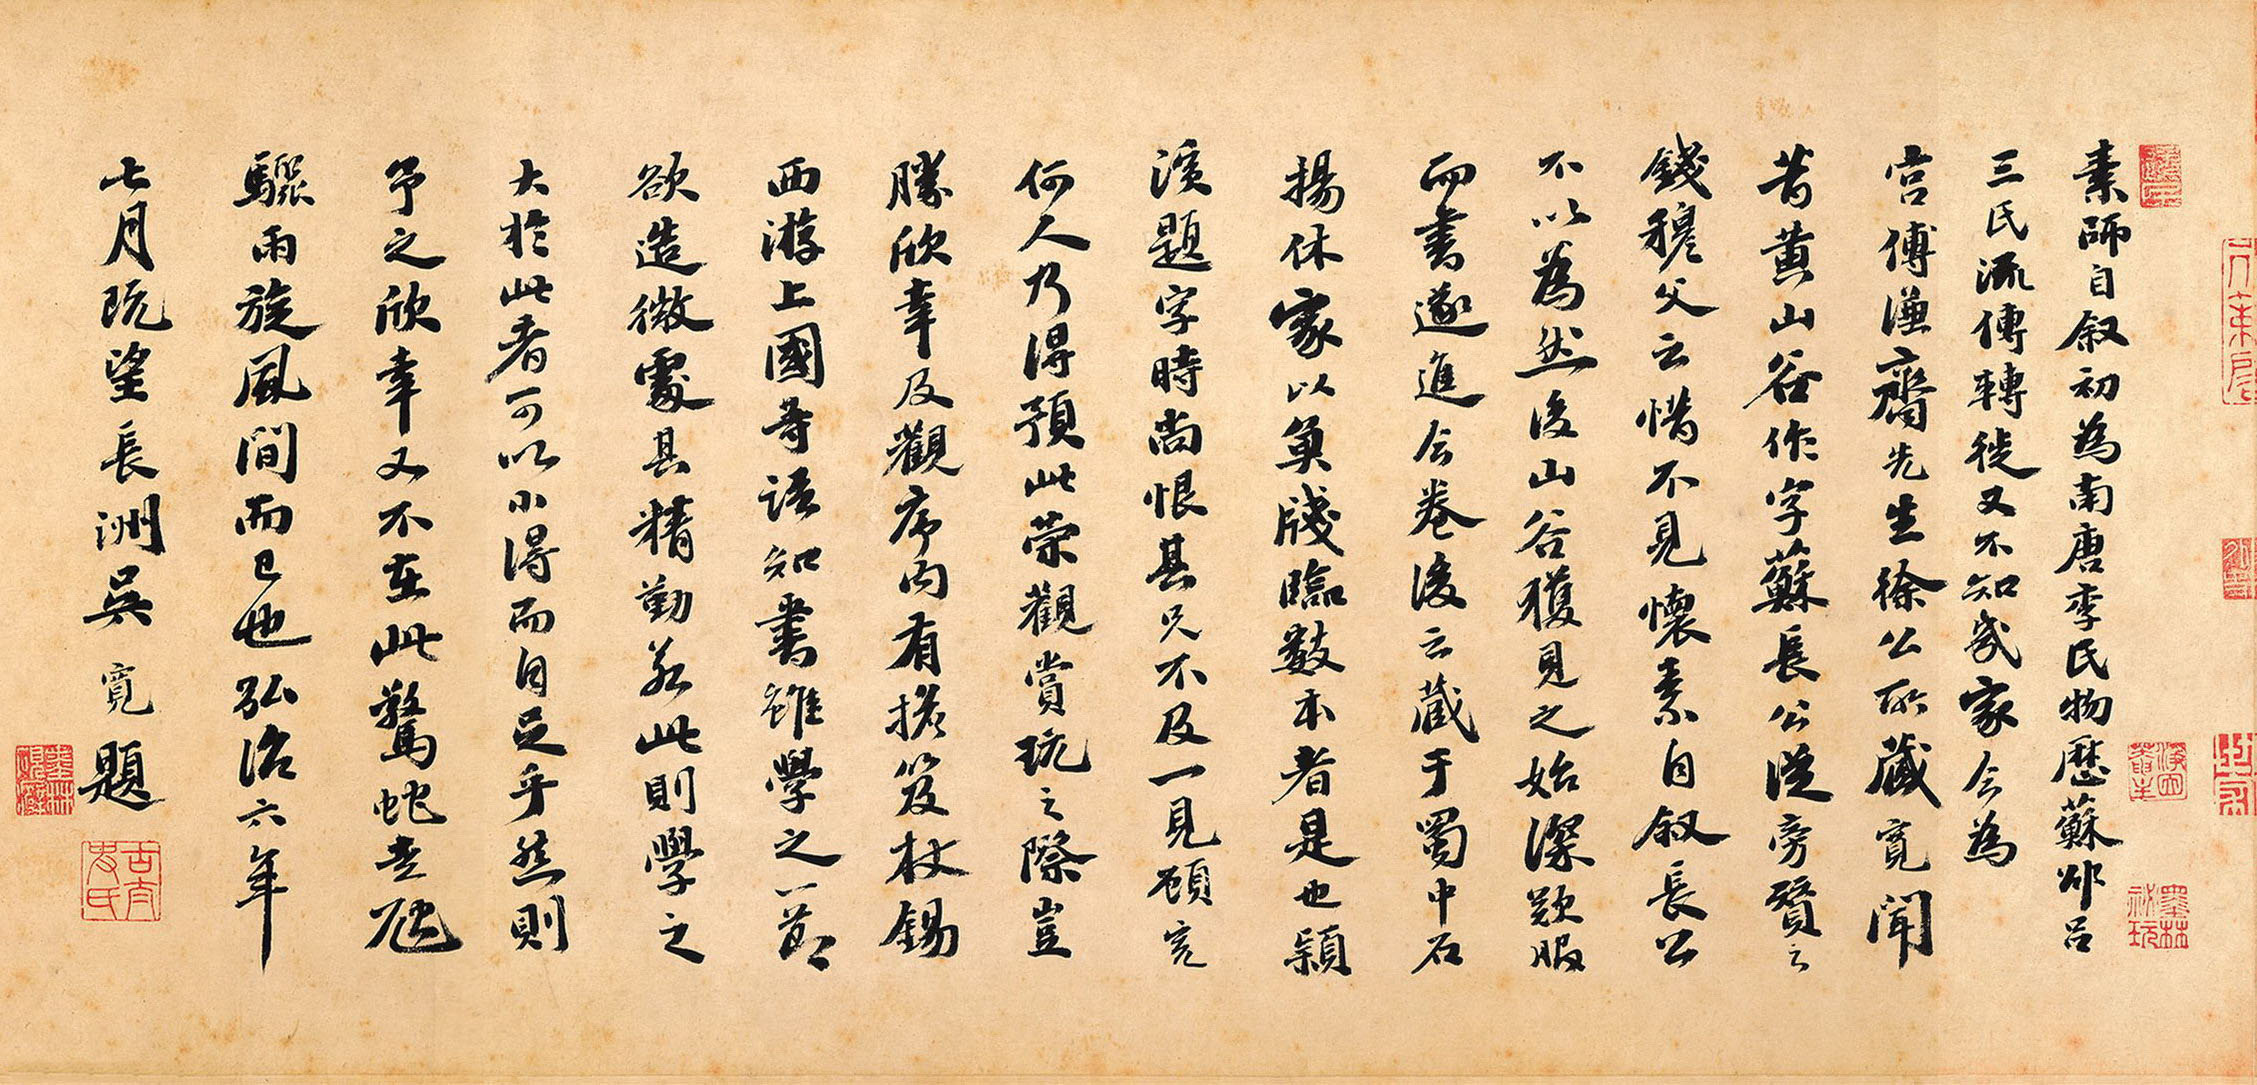 素師自叙初為南唐李氏物歷蘇邵呂
三氏流傳轉徙又不知幾家今為
宫傅謙齋先生徐公所藏寛聞
昔黄山谷作字蘇長公從旁贊之
錢穆父云惜不見懷素自叙長公
不以為然後山谷獲見之始深歎服
而書遂進今卷後云藏于蜀中石
揚休家以魚牋臨數本者是也穎
濱題字時尚恨其兄不及一見顧寛
何人乃得預此榮觀賞玩之際豈
勝欣幸及觀序内有擔笈杖錫
西游上國等語知書雖學之一節
欲造微處其精勤若此則學之
大於此者可以小得而自足乎然則
予之欣幸又不在此驚蛇走虺
驟雨旋風間而已也弘治六年
七月既望長洲吳寛題